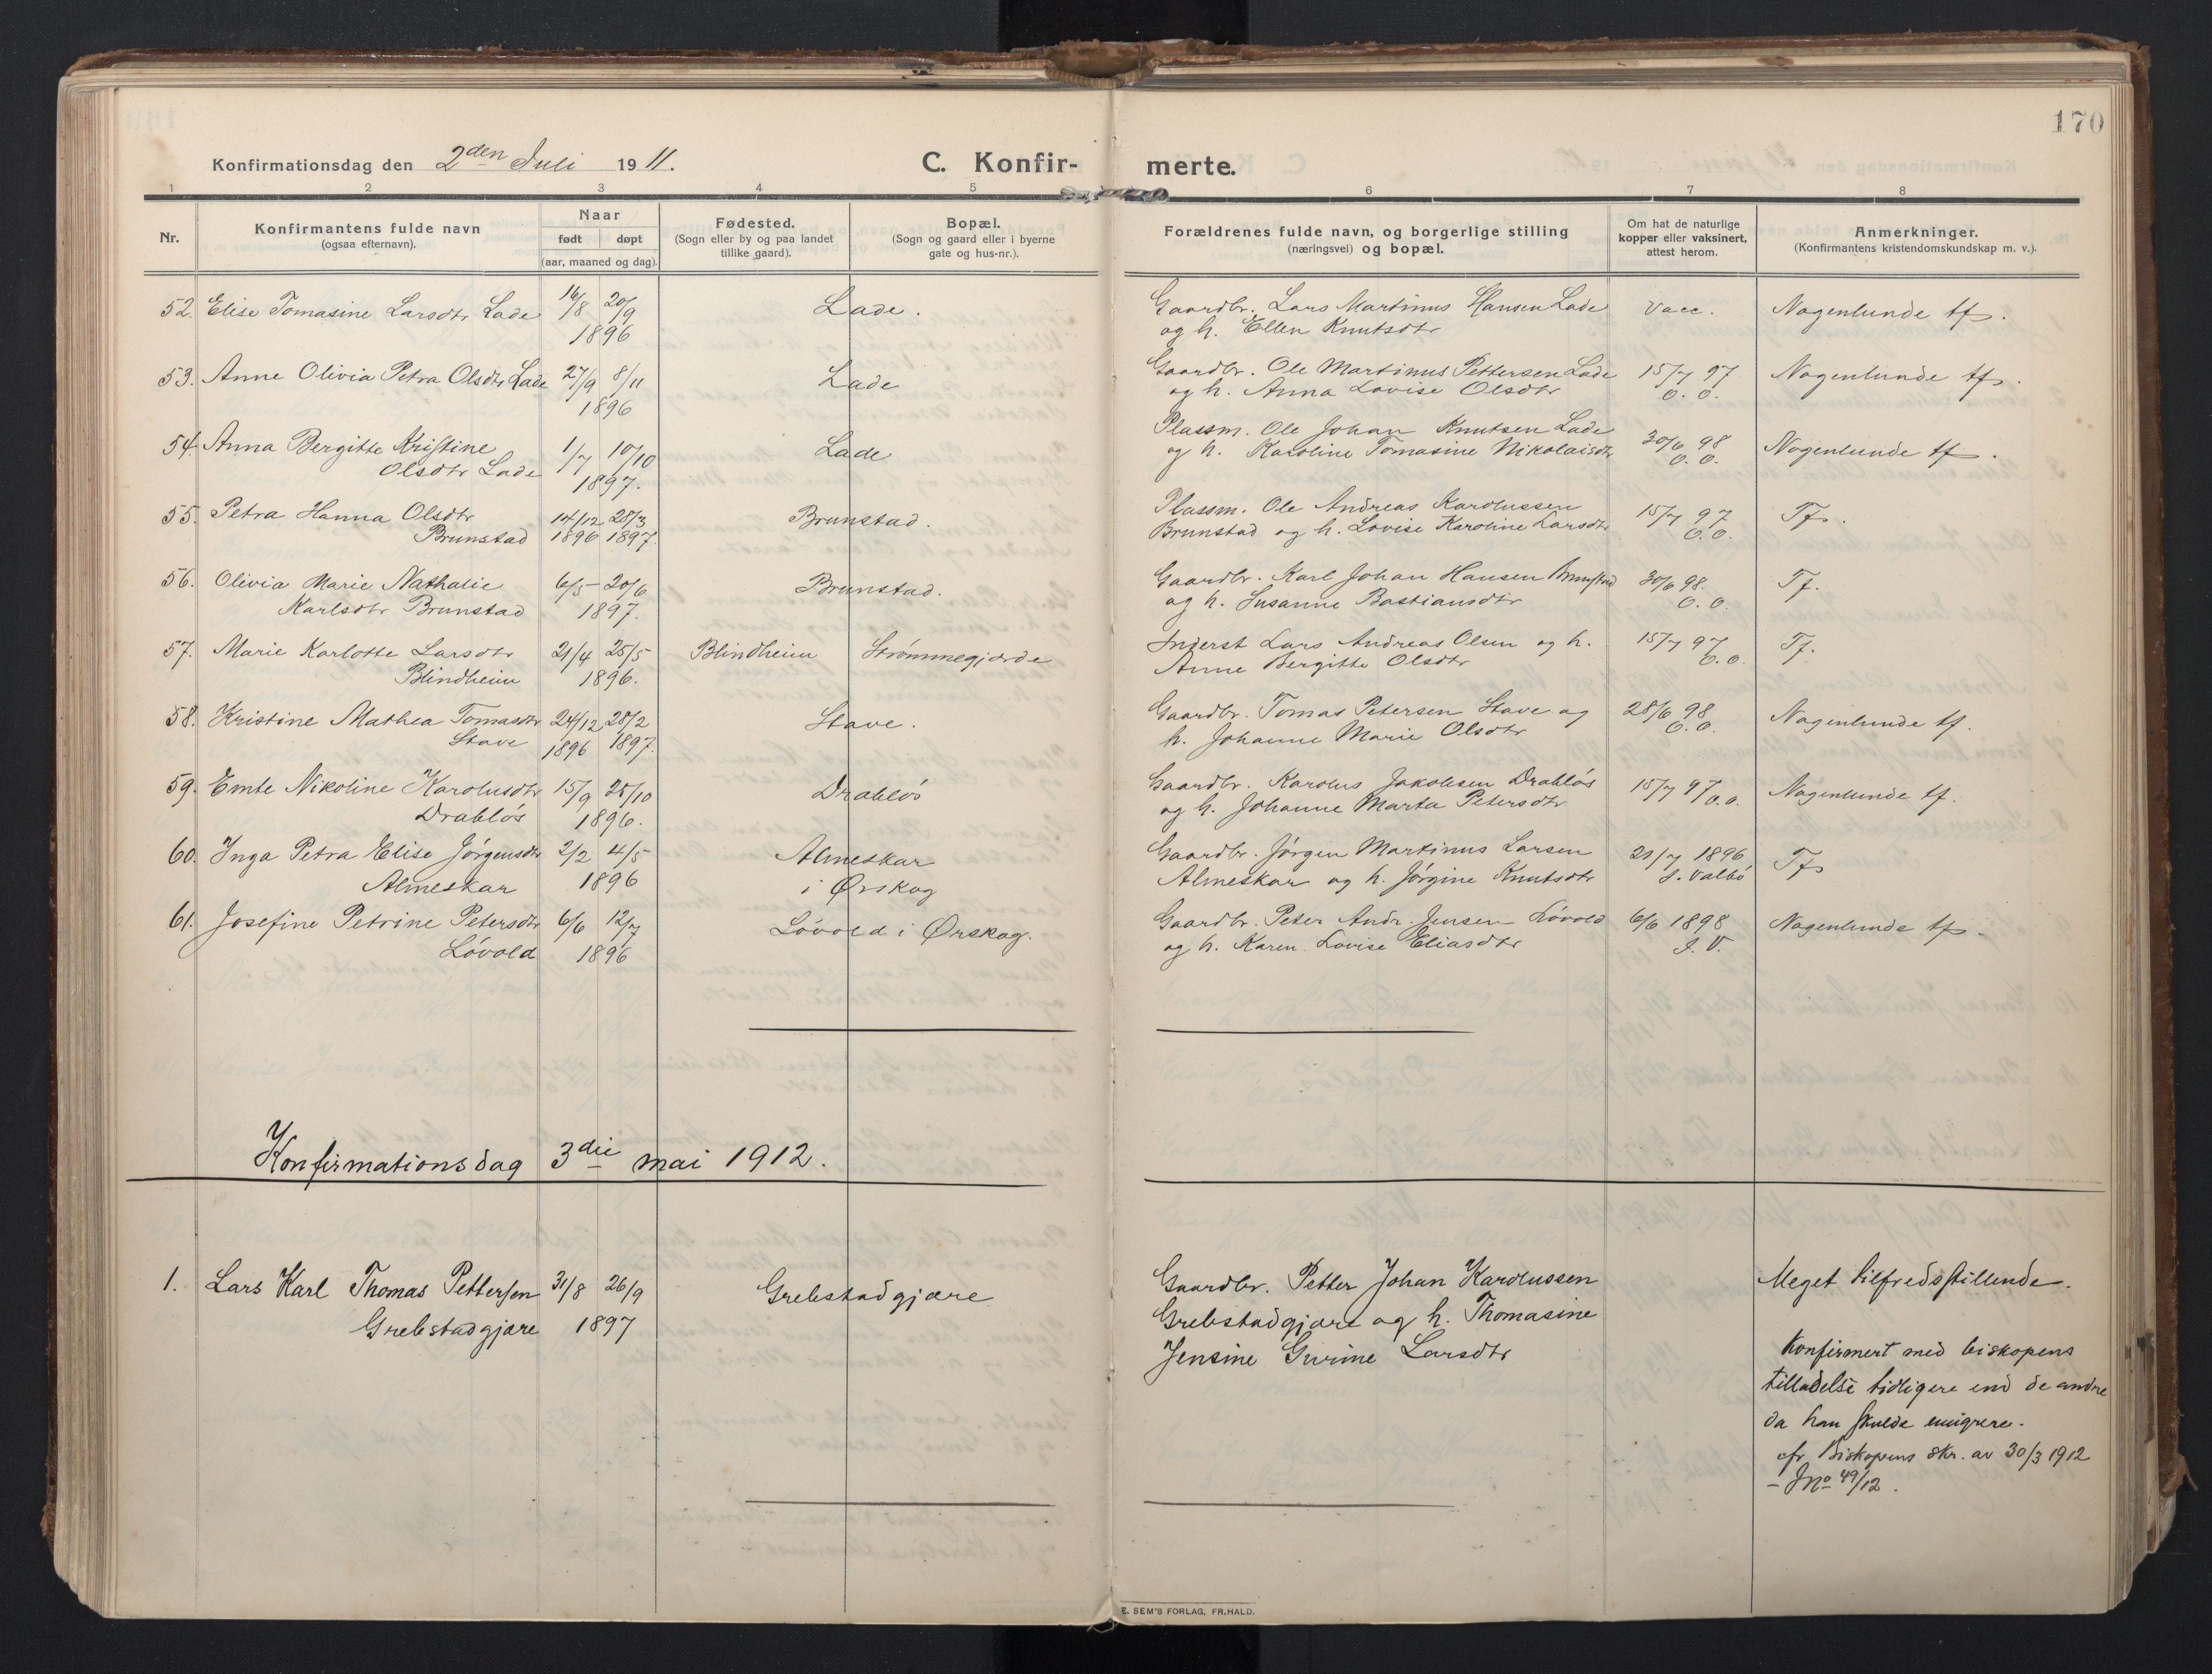 170
Konfirmationsdag den 2den Juli 1911.
C. Konfir-merte.
1 2 3 4 5 6 7 8
Nr.
Konfirmantens fulde navn
(ogsaa efternavn).
Naar
født døpt
(aar, maaned og dag).
Fødested.
(Sogn eller by og paa landet
tillike gaard).
Bopæl.
(Sogn og gaard eller i byerne
gate og hus-nr.).
Forældrenes fulde navn, og borgerlige stilling
(næringsvei) og bopæl.
Om hat de naturlige
kopper eller vaksinert,
attest herom.
Anmerkninger.
(Konfirmantens kristendomskundskap m. v.).
52. Elise Tomasine Larsdtr Lade 16/8 20/9 Lade. Gaardbr. Lars Martinus Hansen Lade Vacc. Nogenlunde tf.
1896 og h. Ellen Knutsdtr
53. Anne Olivia Petra Olsdtr Lade 27/9 8/11 Lade Gaardbr. Ole Martinus Pettersen Lade 15/7 97 Nogenlunde tf.
1896 og h. Anna Lovise Olsdtr O. O.
54. Anna Bergitte Kristine 1/7 10/10 Lade Plassm. Ole Johan Knutsen Lade 30/6 98 Nogenlunde tf.
Olsdtr Lade 1897. og h. Karoline Tomasine Nikolaisdtr O. O.
55. Petra Hanna Olsdtr 14/12 28/3 Brunstad. Plassm. Ole Andreas Karolussen 15/7 97 Tf.
Brunstad 1896 1897. Brunstad og h. Lovise Karoline Larsdtr O. O.
56. Olivia Marie Nathalie 6/5 20/6 Brunstad. Gaardbr. Karl Johan Hansen Brunstad 30/6 98. Tf.
Karlsdtr Brunstad 1897. og h. Susanne Bastiansdtr O. O.
57. Marie Karlotte Larsdtr 21/4 25/5 Blindheim Strømmegjerde Inderst Lars Andreas Olsen og h. 15/7 97 Tf.
Blindheim 1896. Anne Bergitte Olsdtr O. O.
58. Kristine Mathea Tomasdtr 24/12 28/2 Stave. Gaardbr. Tomas Petersen Stave og 28/6 98 Nogenlunde tf.
Stave 1896 1897. h. Johanne Marie Olsdtr O. O.
59. Emte Nikoline Karolusdtr 15/9 25/10 Drabløs Gaardbr. Karolus Jakobsen Drabløs 15/7 97 O. O. Nogenlunde tf.
Drabløs 1896. og h. Johanne Marta Petersdtr
60. Inga Petra Elise Jørgensdtr 2/2 4/5 Almeskar Gaardbr. Jørgen Martinus Larsen 21/7 1896 Tf.
Almeskar 1896 i Ørskog Almeskar og h. Jørgine Knutsdtr J. Valbø
61. Josefine Petrine Petersdtr 6/6 12/7 Løvold i Ørskog. Gaardbr. Peter Andr. Jensen Løvold 6/6 1898 Nogenlunde tf.
Løvold 1896 og h. Karen Lovise Eliasdtr J. V.
Konfirmationsdag 3die mai 1912.
1. Lars Karl Thomas Pettersen 31/8 26/9 Grebstadgjære Gaardbr. Petter Johan Karolussen Meget tilfredsstillende.
Grebstadgjære 1897 Grebstadgjære og h. Thomasine
Jensine Gurine Larsdtr
Konfirmert med biskopens
tilladelse tidligere end de andre
da han skulde emigrere.
cfr. Biskopens skr. av 30/3 1912
– Jno 49/12.
E. SEM'S FORLAG, FR.HALD.